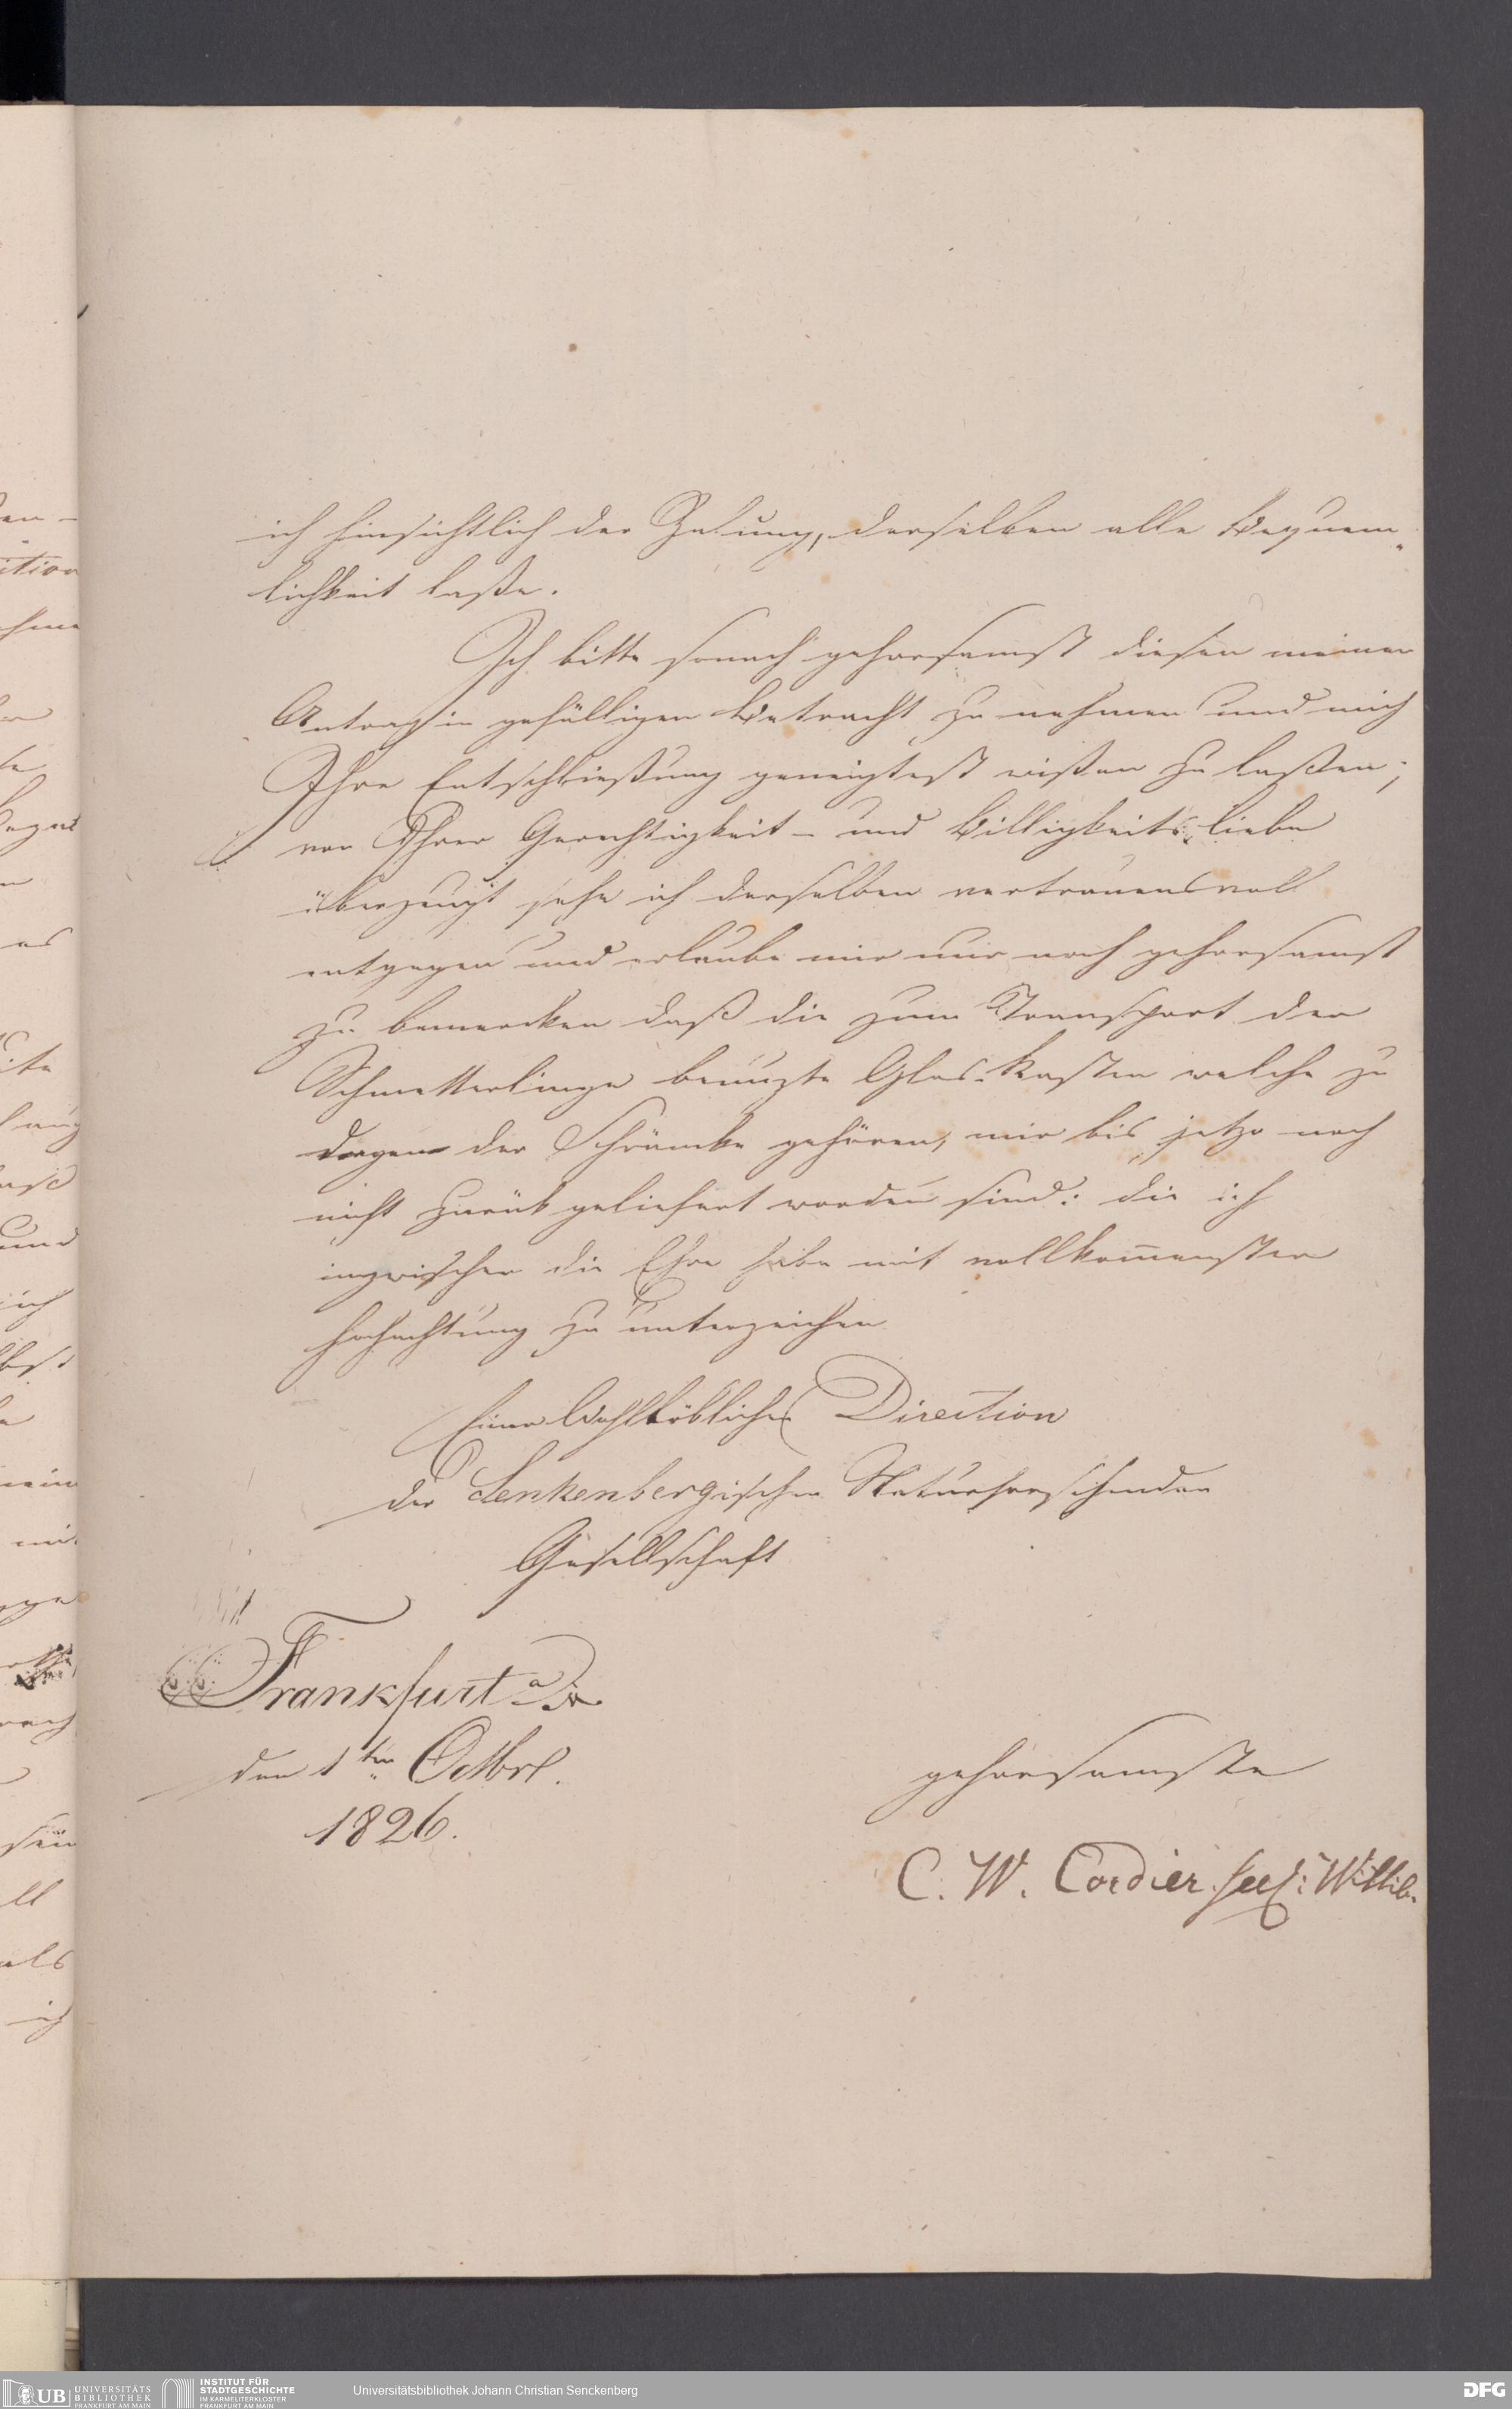 ich hinsichtlich der Zalung, derselben alle Bequem„
lichkeit laße.
Ich bitte sonach gehorsamst diesen meinen
Antrag in gefälligen Betracht zu nehmen und mich
Ihre Entschließung geneigtest wißen zu laßen;
von Ihrer Gerechtigkeit- und Billigkeits-liebe
überzeugt sehe ich derselben vertrauensvoll
entgegen und erlaube mir nur noch gehorsamst
zu bemercken daß die zum Transport der
Schmetterlinge benuzte Glas-Kasten welche zu
der Schräncke gehören, mir bis jetzo noch
nicht zurük geliefert worden sind: die ich
inzwischen die Ehre habe mit vollkom̅enster
Hochachtung zu unterzeichen
Einer Wohllöblichen Direction
der Senkenbergischen Naturforschenden
Gesellschaft
Frankfurt a/M
den 1ten Octbr.
1826.
gehorsamste
C. W. Cordier seel: Wittib.
UB UNIVERSITÄTS
BIBLIOTHEK
FRANKFURT AM MAIN
INSTITUT FÜR
STADTGESCHICHTE
IM KARMELITERKLOSTER
FRANKFURT AM MAIN
Universitätsbibliothek Johann Christian Senckenberg
DFG